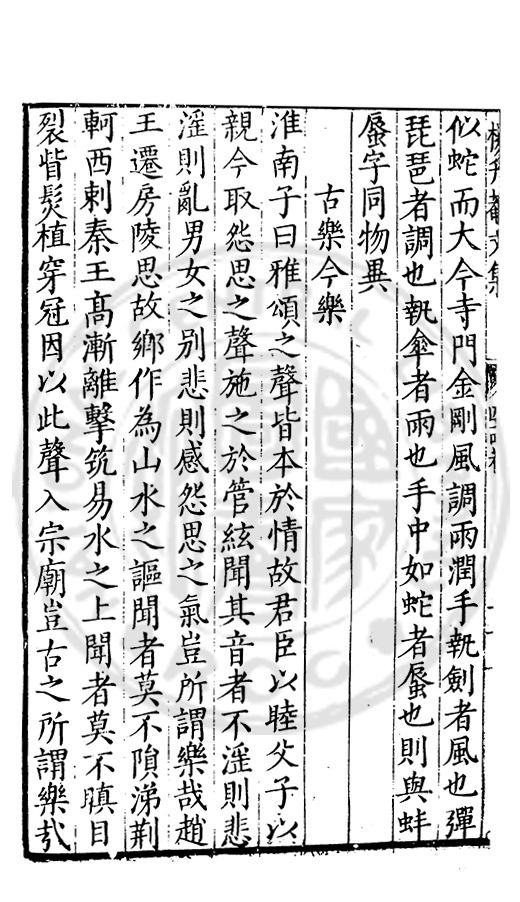 似蛇而大今寺門金剛風調雨潤手執劍者風也彈
琵琶者調也執傘者雨也手中如蛇者蜃也則與蚌
蜃字同物異
古樂今樂
淮南子曰雅頌之聲皆本於情故君臣以睦父子以
親今取怨思之聲施之於管絃聞其音者不淫則悲
淫則亂男女之別悲則感怨思之氣豈所謂樂哉趙
王遷房陵思故鄉作為山水之謳聞者莫不隕涕荆
軻西剌秦王高漸離擊筑易水之上聞者莫不瞋目
裂眥髮植穿冠因以此聲入宗廟豈古之所謂樂哉